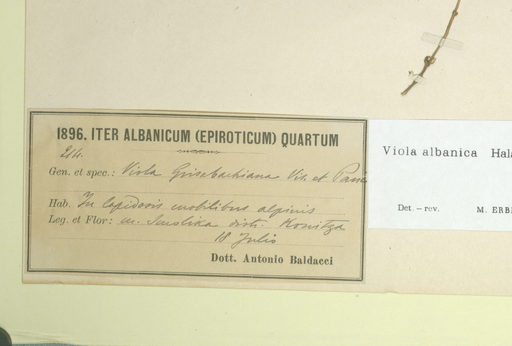 1896. ITER ALBANICUM (EPIROTICUM) QUARTUM
Gen. et spec.: Viola Grisebachiana Vis. et Panc
Hab. In lapidosis mobilibus alpinis
Leg. et Flor: m. Smolika distr. Konitza
18 Julio
Dott. Antonio Baldacci
Viola albanica Hala
Det. – rev. M. ERB